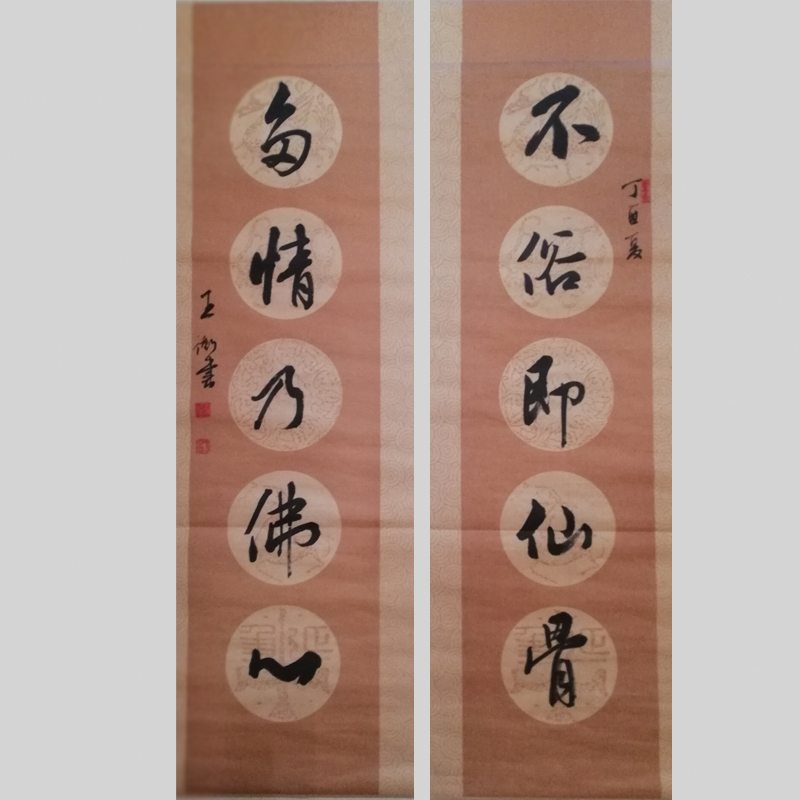 不俗即仙骨
丁酉夏
多情乃佛心
王
書